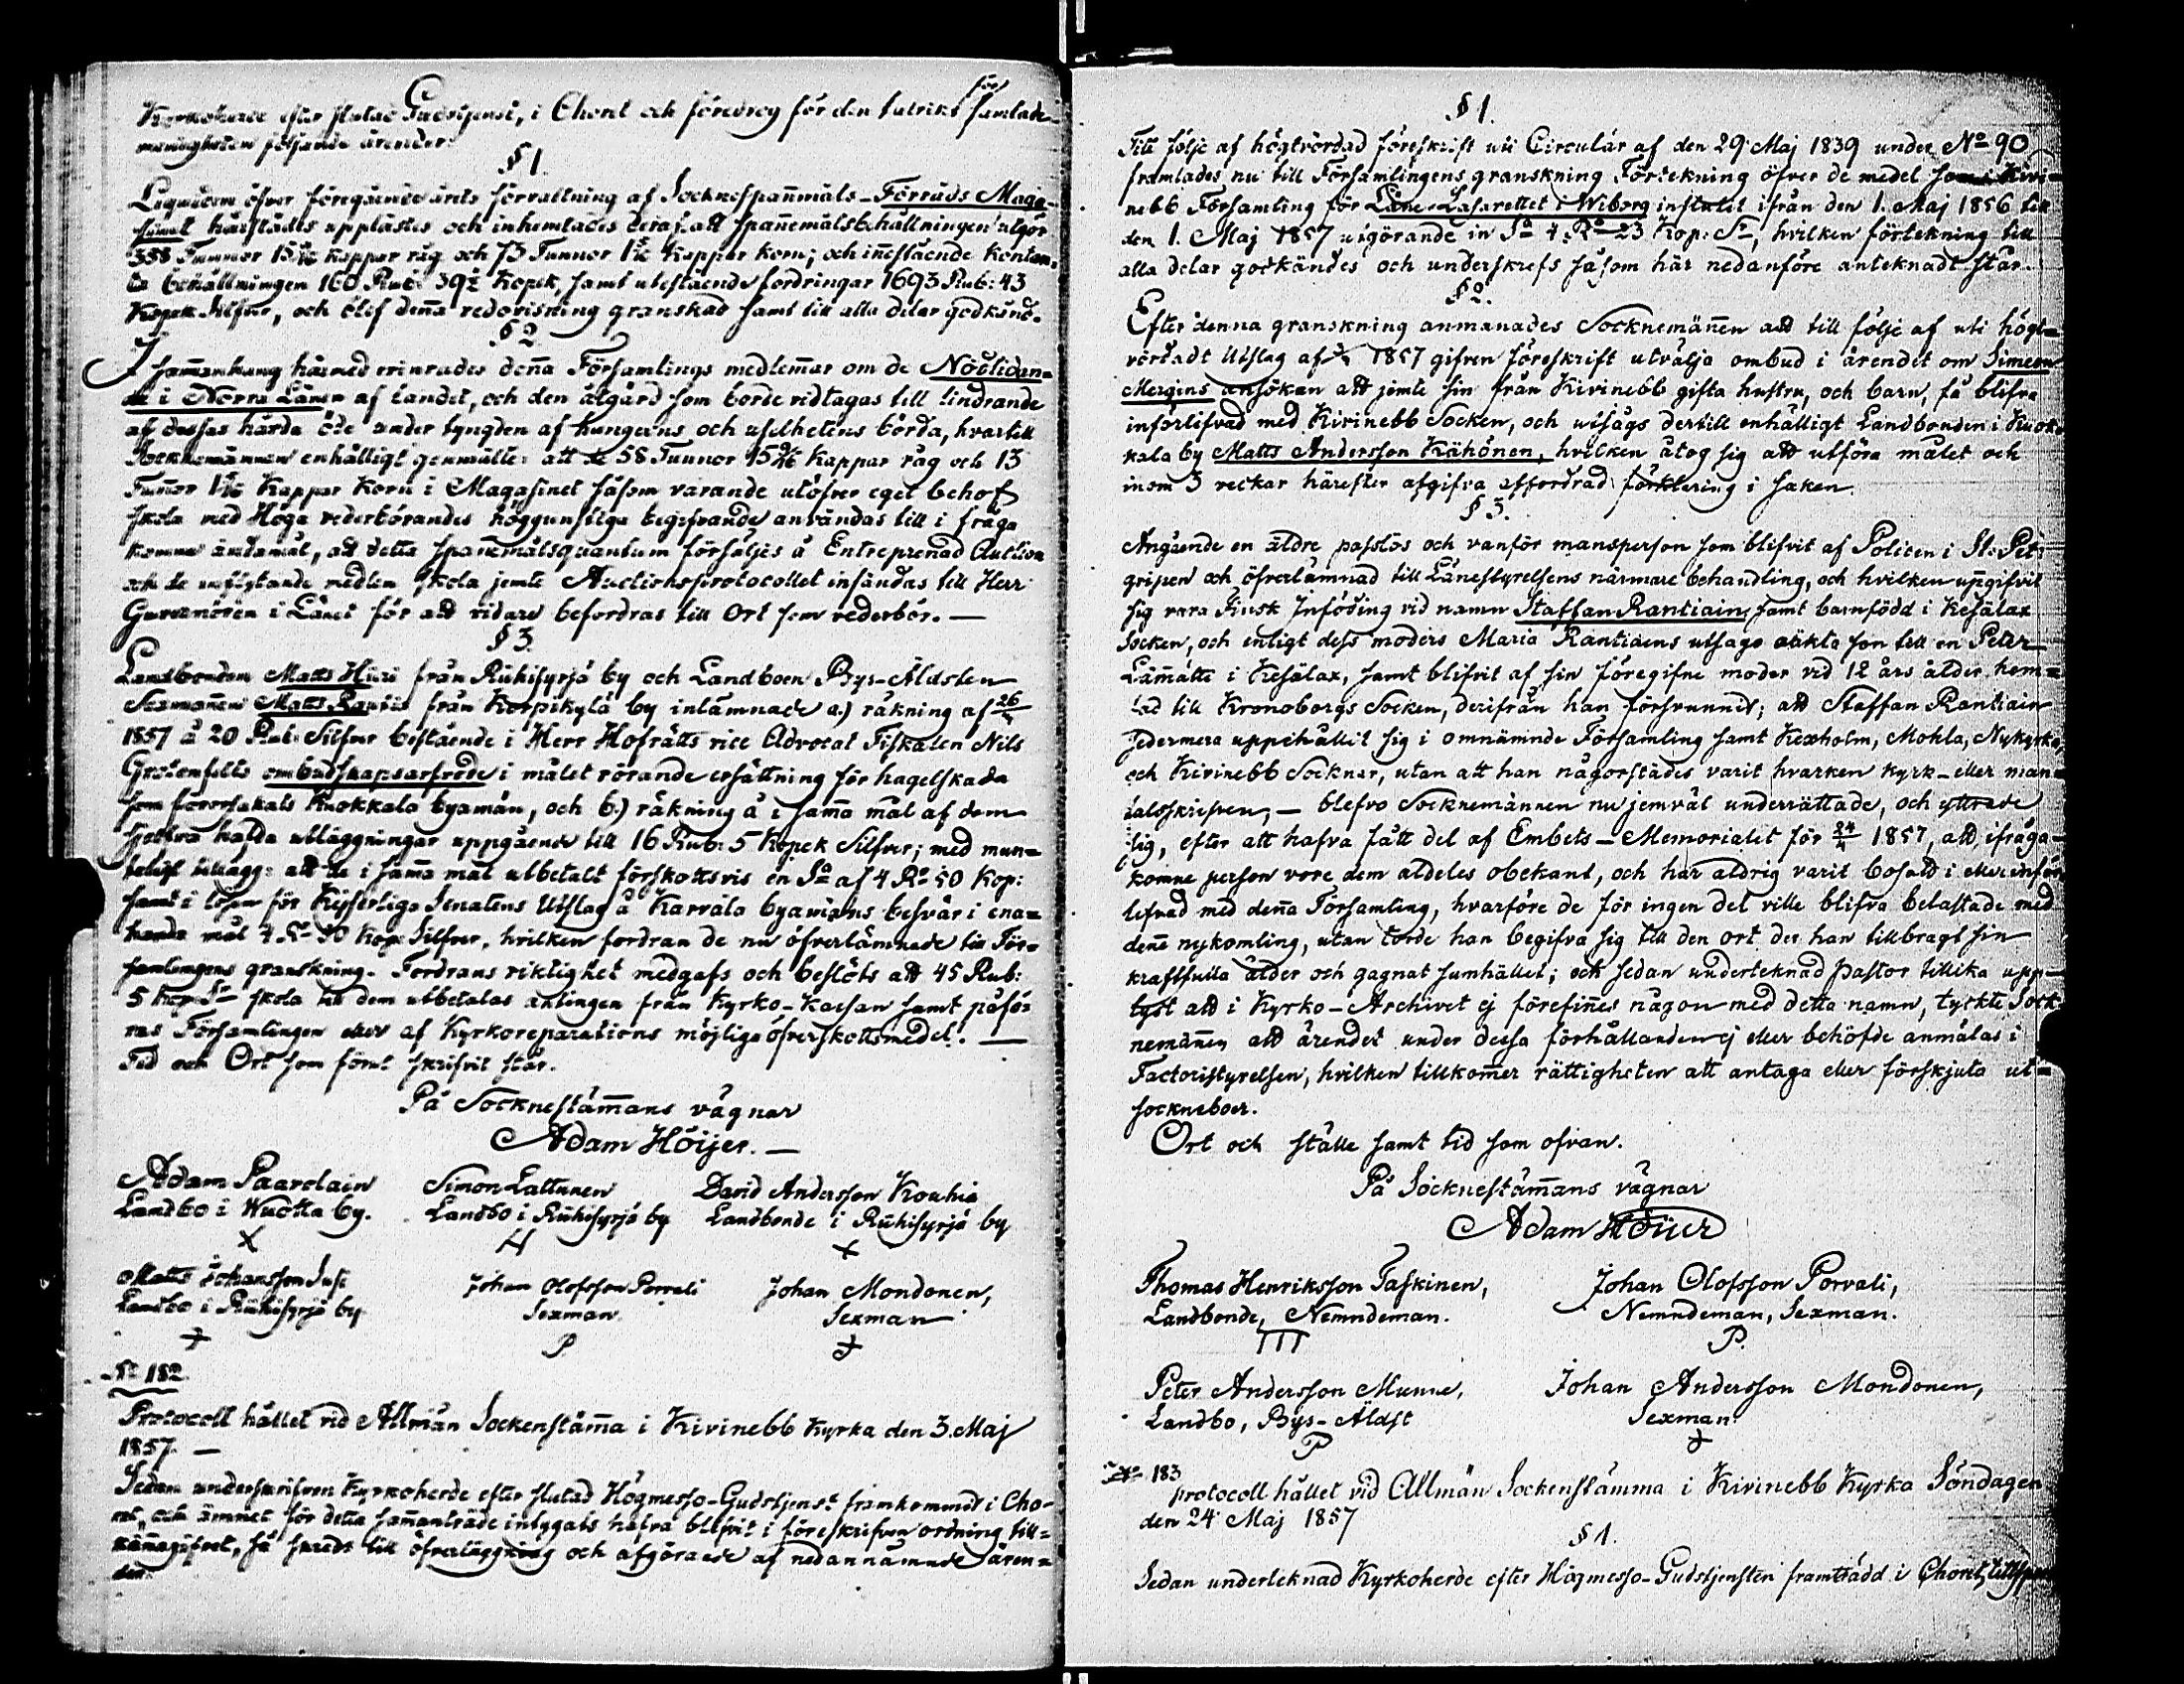 Kyrkoherde efter slutad Gudstjenst, i Choret och föredrog för den talrikt församlade
menigheten följande ärender:
§ 1.
Liquiden öfver föregående årets förvaltning af Sockne spañmåls-Förråds Maga-
härstädes upplästes och inhemtades deraf att spañemålsbehållningen utgör
358 Tunnor Kappar råg och 73 Tunnor Kappar korn; och iñestående Kontan-
ta behållningen 160 Rub: 39½ Kopek, samt utestående fordringar 1693 Rub: 43
Kopek Silfver, och blef deña redovisning granskad samt till alla delar godkänd.
§ 2
I sam̄anhang härmed erinrades deña Församlings medlem̄ar om de Nödlidan-
de i Norra Länen af landet, och den åtgård som borde vidtagas till lindrande
af dessas hårda öde under tyngden af hungerns och uselhetens börda, hvartill
Socknemännen enhälligt genmälte: att de 58 Tunnor Kappar råg och 13
Tuñor Kappar Korn i Magasinet såsom varande utöfver eget behof
skola med Höga vederbörandes höggunstliga begifvande användas till i fråga
komne ändamål, att detta spañemålsquantum försäljes å Entreprenad Auction
och de inflytande medlen skola jemte Auctionsprotocollet insändas till Herr
Guvernören i Länet för att vidare befordras till Ort som vederbör. —
§ 3.
Landbonden Matts Hiiri från Riihisyrjä by och Landboen Bys-Äldsten
Sexmañen Matts från Korpikylä by inlämnade a.) räkning af 26/4
1857 å 20 Rub: Silfver bestående i Herr Hofrätts vice Advocat Fiskalen Nils
Grotenfelts ombudskapsarfvode i målet rörande ersättning för hagelskada
som förorsakats Kuokkala byamän, och b.) räkning å i sam̄a mål af dem
hafda utläggningar uppgående till 16 Rub: 5 Kopek Silfver; med mun-
teligt tillägg: att de i sam̄a mål utbetalt förskottsvis en Sa af 4 Ro 50 Kop:
samt i lösen för Kejserliga Senatens Utslag å Karvala byamäns besvär i ena-
handa mål 4 Ro 50 Kop: Silfver, hvilken fordran de nu öfverlämnade till För-
samlingens granskning. Fordrans riktighet medgafs och beslöts att 45 Rub:
5 Kop: Sr skola till dem utbetalas antingen från Kyrko-Kassan samt påfö-
ras Församlingen eller af Kyrkoreparations möjliga öfverskottsmedel. —
Tid och Ort som förut skrifvit står.
På Socknestäm̄ans vägnar
Adam Höijer. —
Adam Paavolain Simon Lattunen David Andersson Kouhia
Landbo i Wuotta by. Landbo i Riihisyrjä by Landbonde i Riihisyrjä by
X H X
Matts Johansson Susi Johan Olofsson Porvali Johan Mondonen,
Landbo i Riihisyrjä by Sexman Sexman
X P X
No 182.
Protocoll hållet vid Allmän Sockenstäm̄a i Kivinebb Kyrka den 3. Maj
1857. —
Sedan underskrifven Kyrkoherde efter slutad Högmesso-Gudstjenst framkommit i Cho-
ret, och ämnet för detta sam̄anträde intygats hafva blifvit i föreskrifven ordning till-
kännagifvet, så skreds till öfverläggning och afgörande af nedannämnde ären-
der.
§ 1.
Till följe af högtvördad föreskrift uti Circulär af den 29. Maj 1839 under No 90
framlades nu till Församlingens granskning Förtekning öfver de medel som i Kivi-
nebb Församling för Läne-Lasarettet i Wiborg influtit ifrån den 1. Maj 1856 till
den 1. Maj 1857 utgörande in Sa 4. Ro 23 Kop: Sr, hvilken förtekning till
alla delar godkändes och underskrefs såsom här nedanföre anteknadt står.
§ 2.
Efter denna granskning anmanades Socknemäñen att till följe af uti högt-
vördadt Utslag af 1857 gifven föreskrift utvälja ombud i ärendet om Simeon
Mergins ansökan att jemte sin från Kivinebb gifta hustru, och barn, få blifva
införlifvad med Kivinebb Socken, och utsågs dertill enhälligt Landbonden i Kuok-
kala by Matts Andersson Kähönen, hvilken åtog sig att utföra målet och
inom 3 veckar härefter afgifva affordrad förklaring i saken.
§ 3.
Angående en äldre passlös och vanför mansperson som blifvit af Policen i St: Pet:
gripen och öfverlämnad till Länestyrelsens närmare behandling, och hvilken uppgifvit
sig vara Finsk Inföding vid namn Staffan Rantiain, samt barnfödd i Kesälax
Socken, och enligt dess moders Maria Rantiaens utsago oäkta son till en Peter
Läm̄ätti i Kesälax, samt blifvit af sin föregifne moder vid 12 års ålder hem-
tad till Kronoborgs Socken, derifrån han försvunnit; att Staffan Rantiain
sedermera uppehållit sig i omnämnde Församling samt Kexholm, Mohla, Nykyrka,
och Kivinebb Socknar, utan att han någorstädes varit hvarken kyrk- eller man-
talsskrifven; — blefvo Socknemännen nu jemväl underrättade, och yttrade
sig, efter att hafva fått del af Embets-Memorialet för 24/4 1857, att ifråga-
komne person vore dem aldeles obekant, och har aldrig varit bosatt i eller inför-
lifvad med deña Församling, hvarföre de för ingen del ville blifva belastade med
deñe nykomling, utan torde han begifva sig till den ort der han tillbragt sin
kraftfulla ålder och gagnat samhället; och sedan underteknad Pastor tillika upp-
lyst att i Kyrko-Archivet ej förefiñes någon med detta namn, tyckte Sock-
nemäñen att ärendet under dessa förhållanden ej eller behöfde anmälas i
Factoristyrelsen, hvilken tillkom̄er rättigheten att antaga eller förskjuta ut-
sockneboer.
Ort och ställe samt tid som ofvan.
På Socknestäm̄ans vägnar
Adam Höijer
Thomas Henriksson Taskinen, Johan Olofsson Porvali,
Landbonde, Nemndeman. Nemndeman, Sexman.
TTT P.
Peter Andersson Munne, Johan Andersson Mondonen,
Landbo, Bys-Äldst Sexman
P X
No 183
Protocoll hållet vid Allmän Sockenstämma i Kivinebb Kyrka Söndagen
den 24 Maj 1857
§ 1.
Sedan underteknad Kyrkoherde efter Högmesso-Gudstjensten framträdd i Choret,